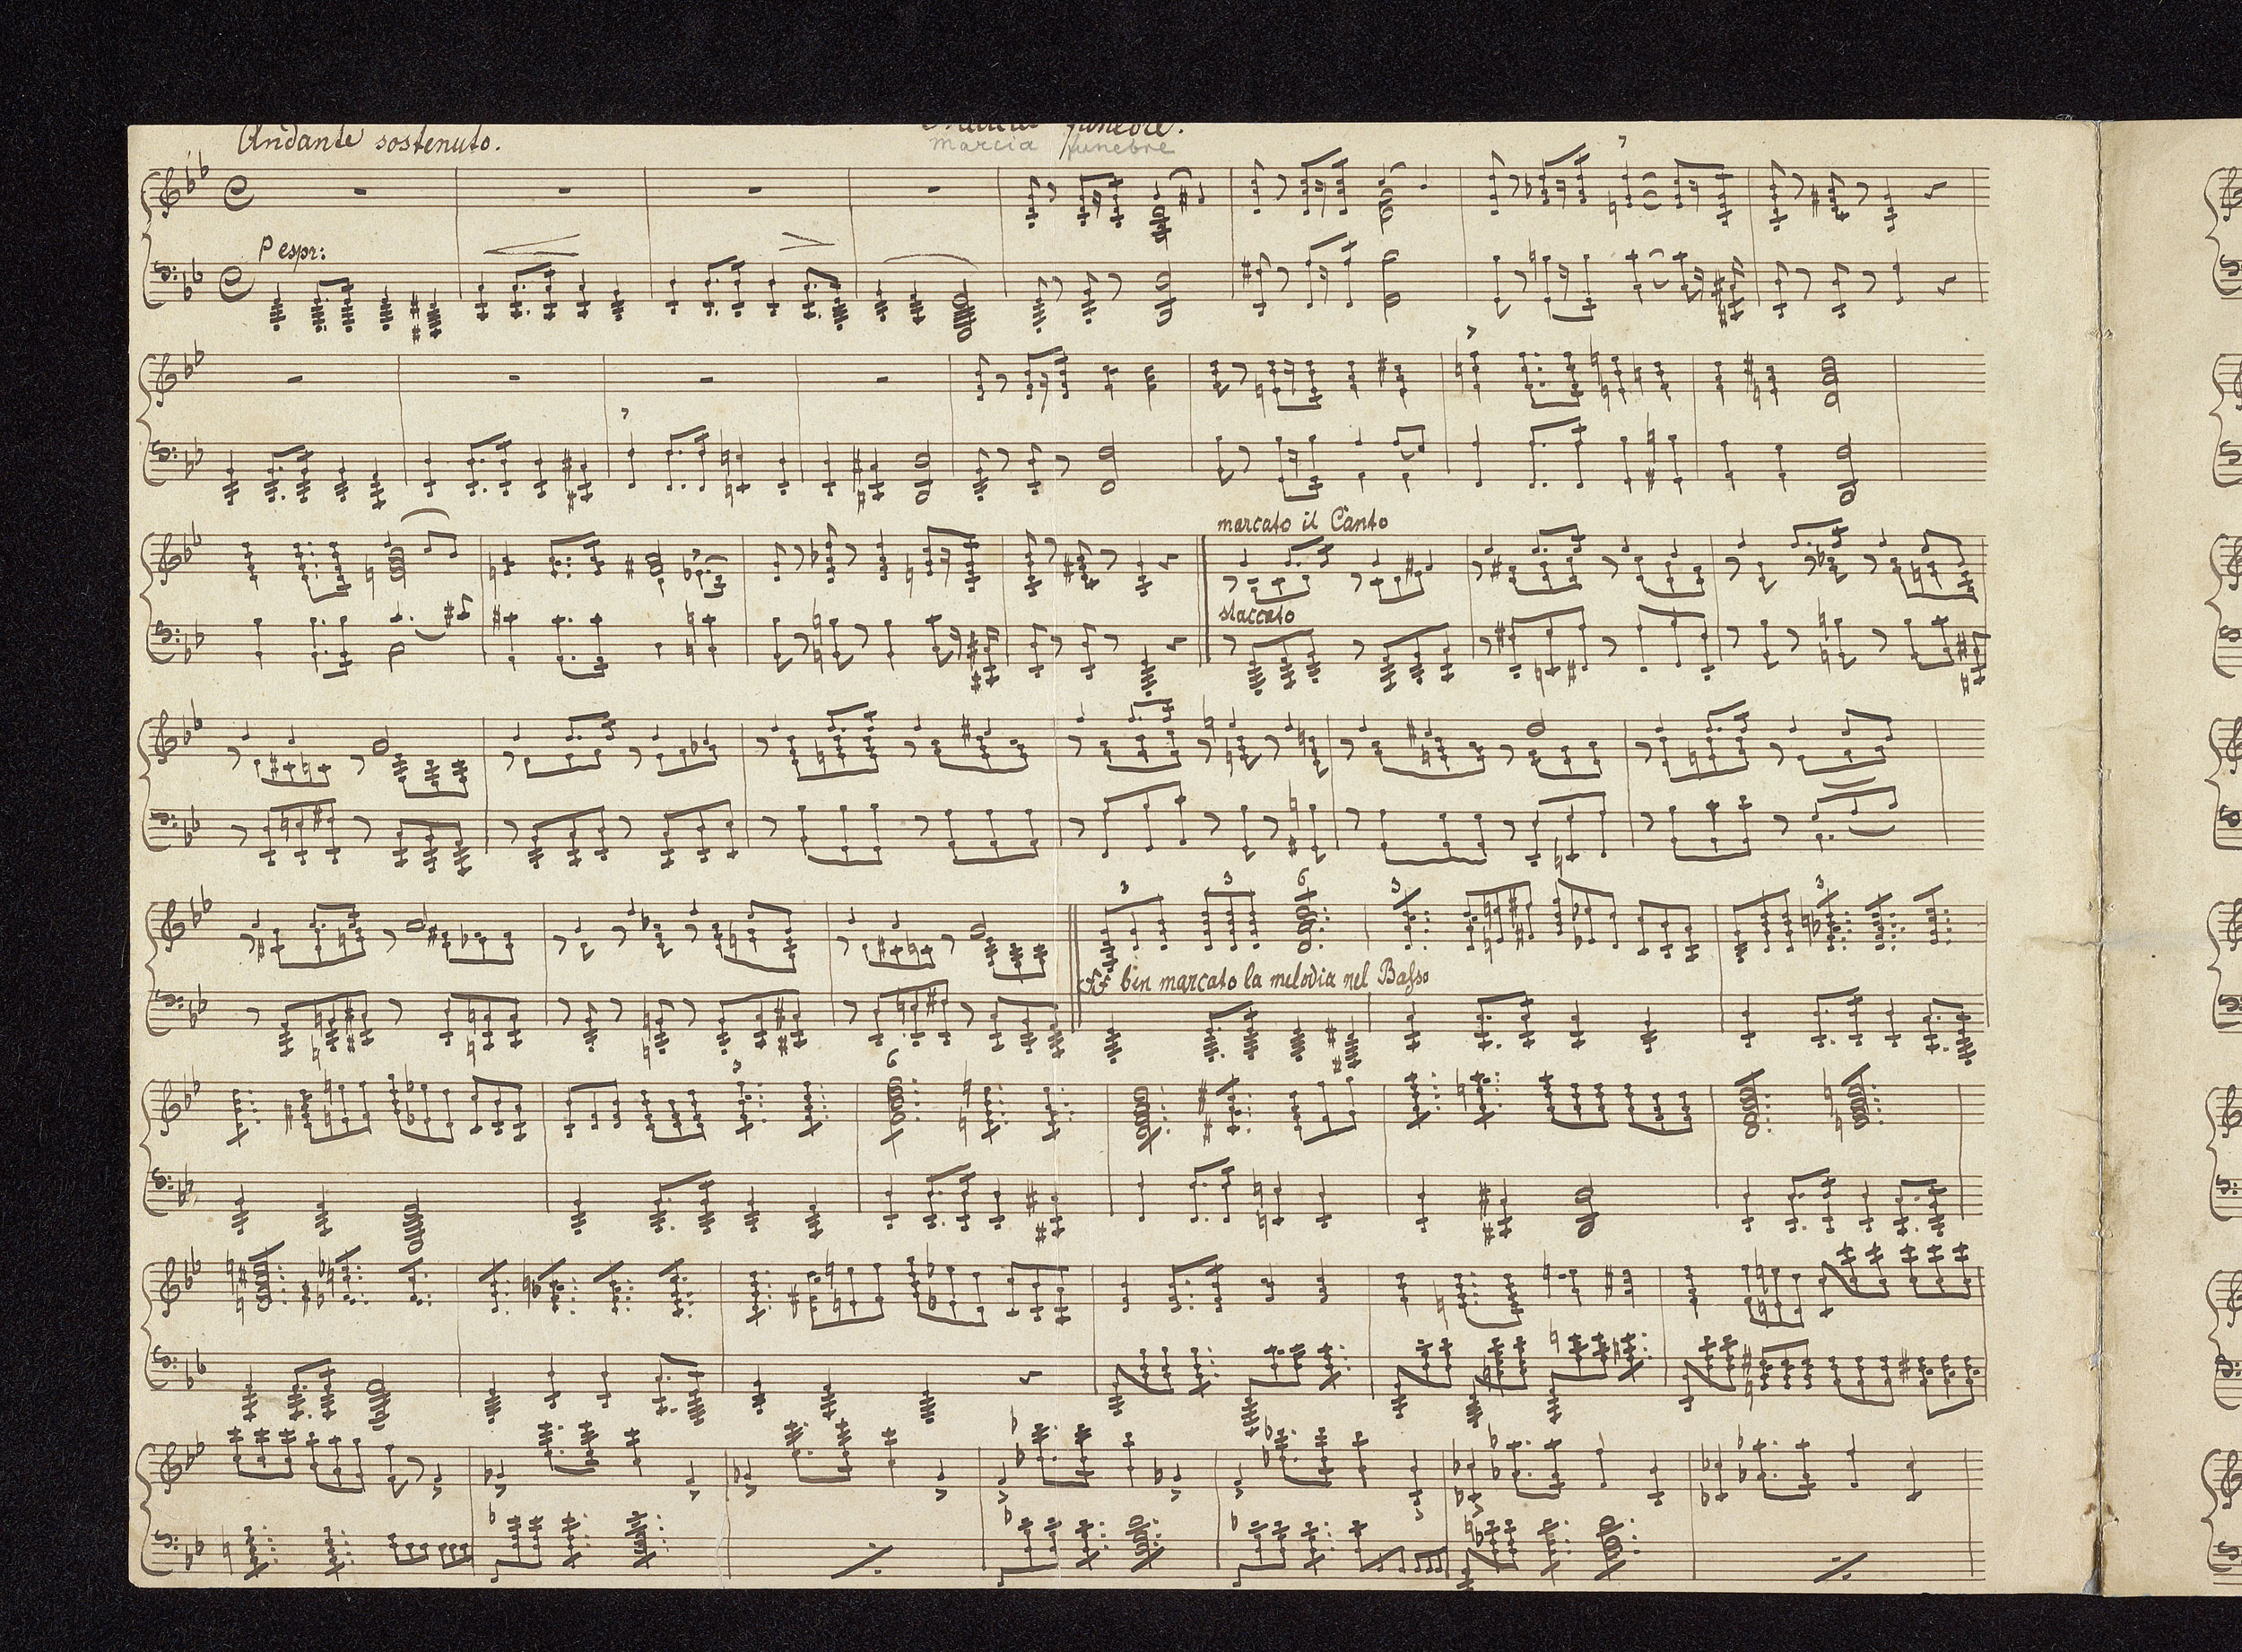 Andante sostenuto.
funebre.
marcia funebre
p espr:
marcato il Canto
staccato
3 3 6 3 3
ff ben marcato la melodia nel Basso
3 6